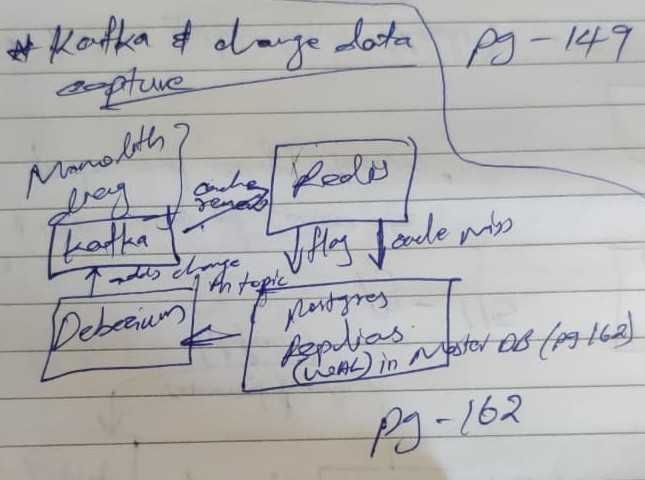 # Kafka & change data pg - 149
capture
Monolith
Kafka
cache
Redis
flag
cache miss
adds change
in topic
Debezium
Postgres
Replicas
(WAL) in Master DB (pg 162)
pg - 162